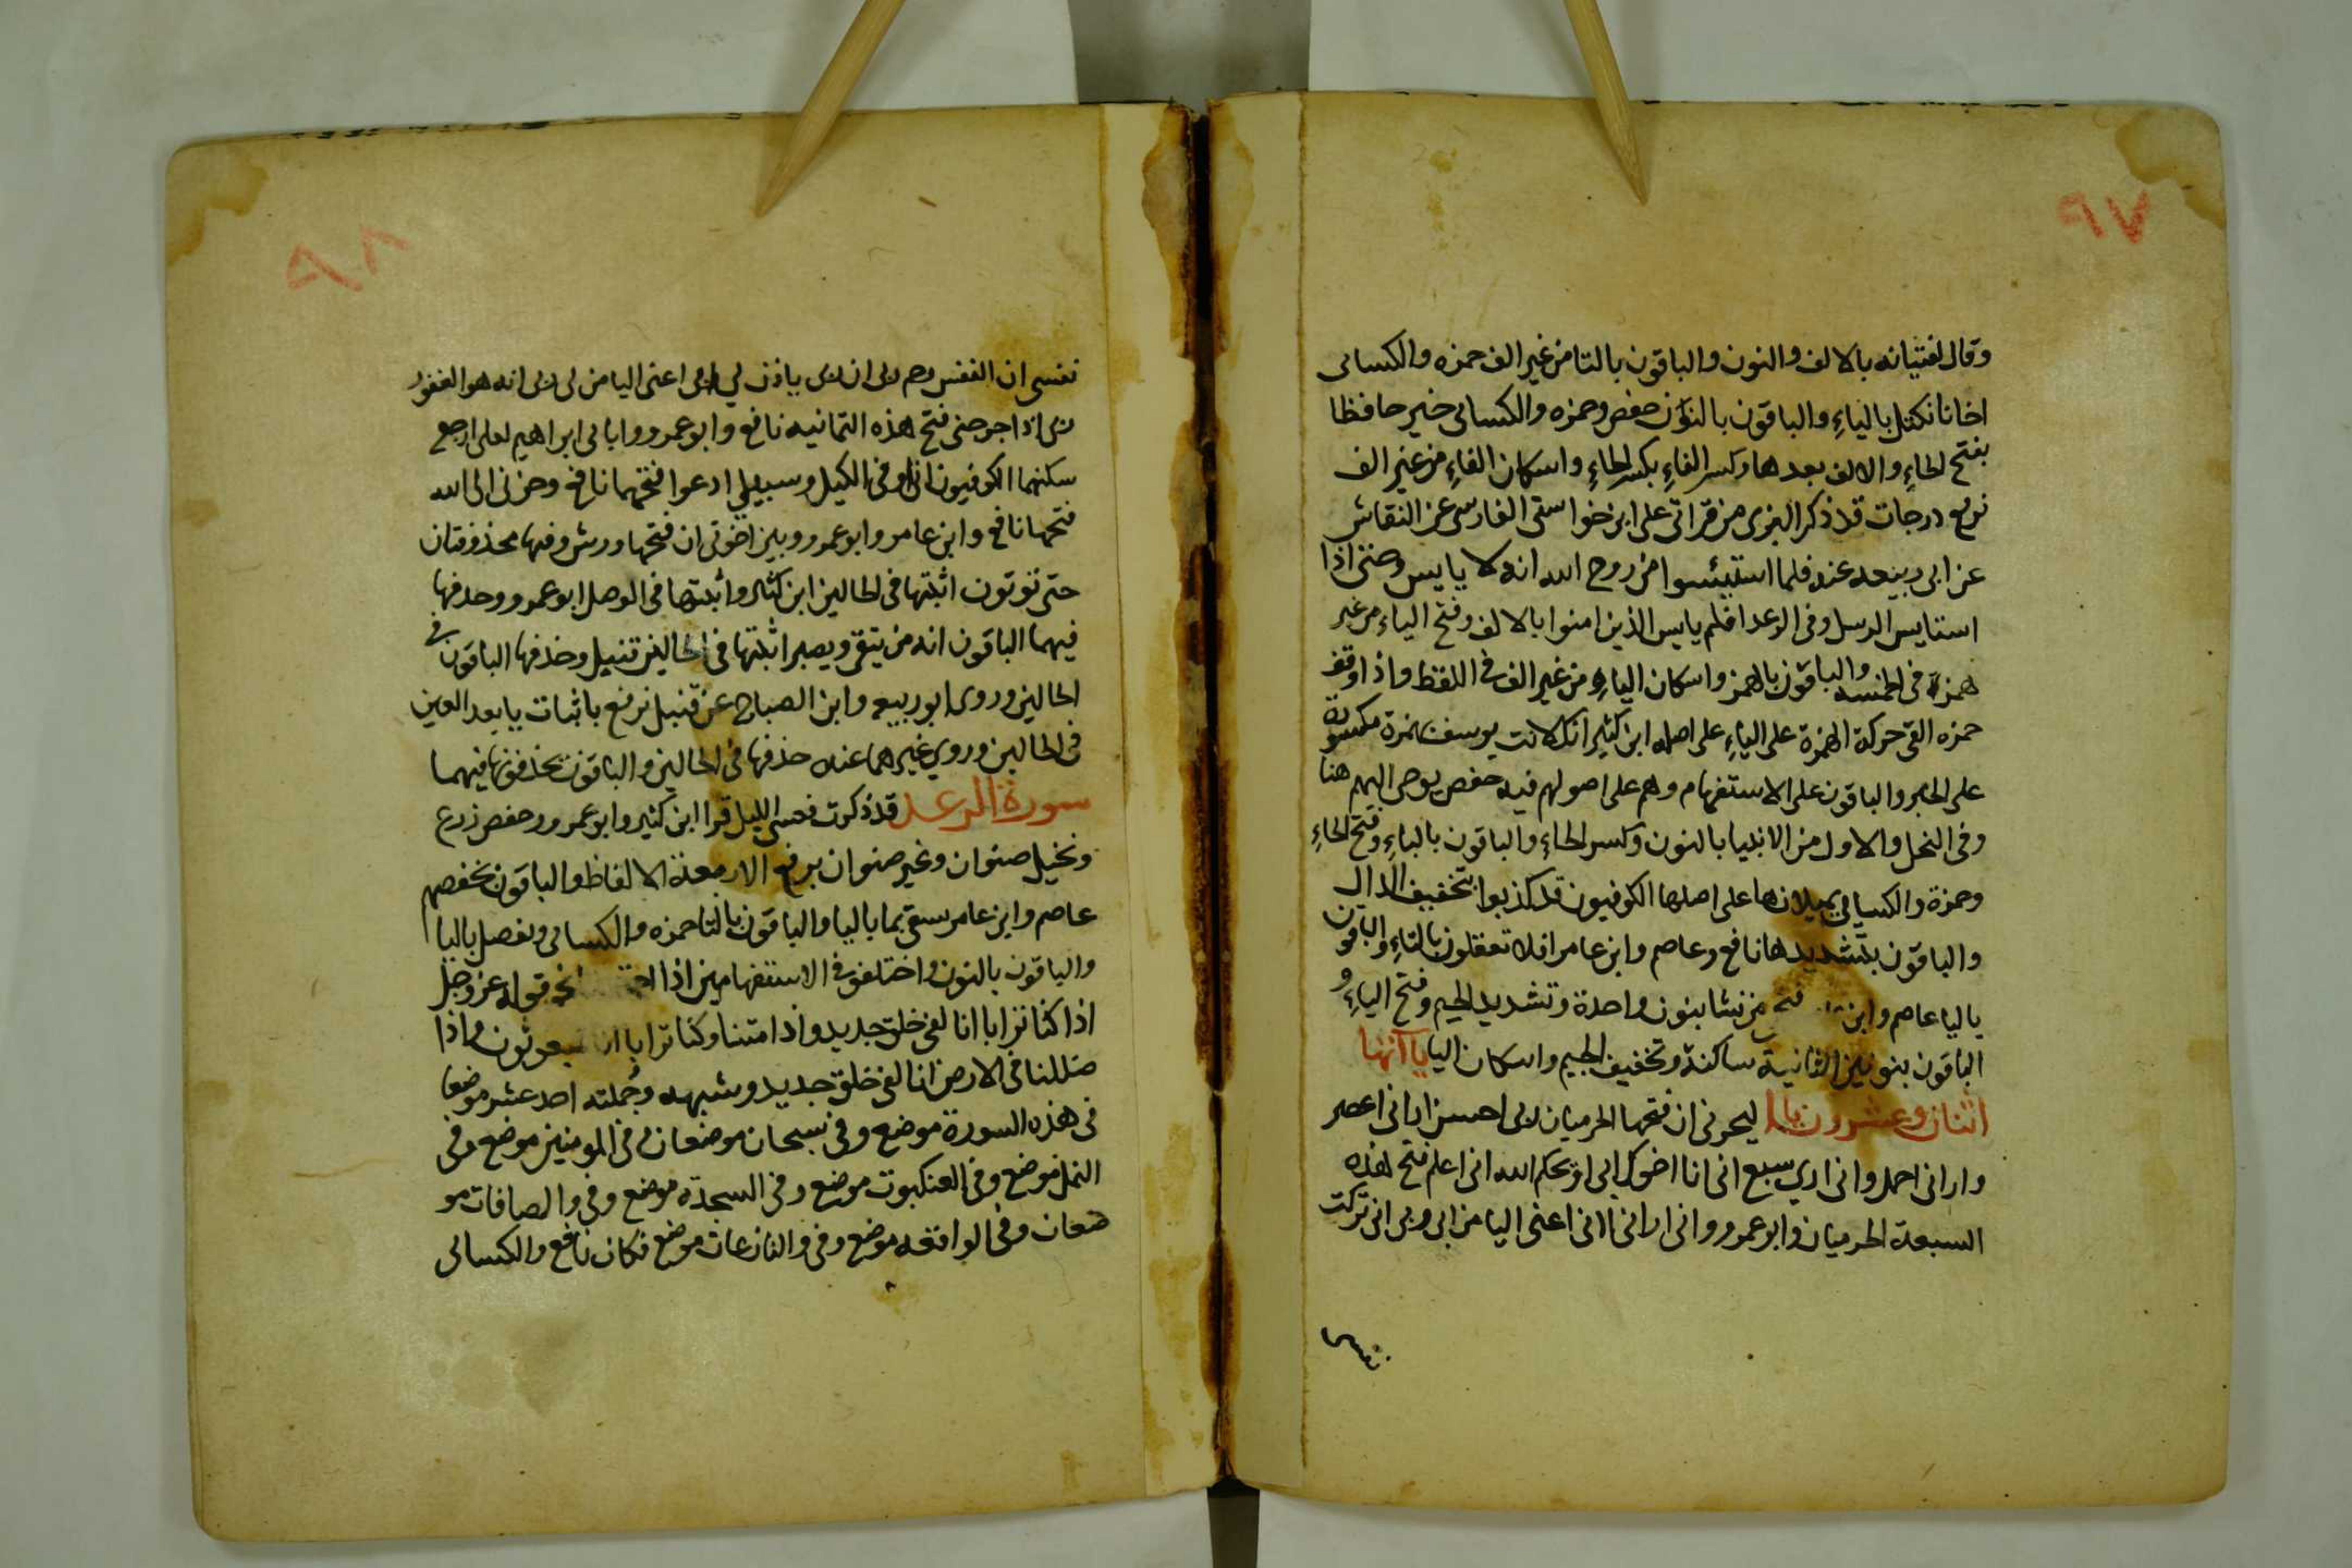 ٩٧
وقال لفتيانه بالالف والنون والباقون بالتا من غير الف حمزه والكسائى
اخانا نكتل بالياءِ والباقون بالنون حفص وحمزه والكسائى خير حافظا
بفتح الحاءِ والالف بعدها وكسر الفاءِ بكسر الحاءِ واسكان الفاءِ من غير الف
نرفع درجات قد ذكر البزى من قراتى على ابن خواستى الفارسى عن النقاش
عن ابى ربيعه عنه فلما استيئسوا من روح الله انه لا يايس وحتى اذا
استايس الرسل وفى الرعد افلم يايس الذين امنوا بالالف وفتح الياء من غير
همزة فى الخمسه والباقون بالهمز واسكان الياءِ من غير الف فى اللفظ واذا وقف
حمزه القى حركة الهمزة على الياءِ على اصله ابن كثير انك لانت يوسف بهمزة مكسورة
على الخبر والباقون على الاستفهام وهم على اصولهم فيه حفص نوحى اليهم هنا
وفى النحل والاول من الانبيا بالنون وكسر الحاءِ والباقون بالياءِ وفتح الحاءِ
وحمزة والكسائى يميلانها على اصلها الكوفيون قد كذبوا بتخفيف الذال
والباقون بتشديدها نافع وعاصم وابن عامر افلا تعقلون بالتاءِ والباقون
باليا عاصم وابن فنجى من نشا بنون واحدة وتشديد الجيم وفتح الياءِ و
الباقون بنونين الثانية ساكنة وتخفيف الجيم واسكان اليا ياآتها
اثنان وعشرون يا ليحزنى ان فتحها الحرميان ربى احسن ارانى اعصر
وارانى احمل وانى ارى سبع انى انا اخوك ابى او يحكم الله انى اعلم فتح هذه
السبعة الحرميان وابو عمرو وانى ارانى انى اعنى اليا من ابى وبى انى تركت
نفسى
٩٨
نفسى ان النفس رحم ربى ان ربى ياذن لي ابى اعنى اليا من لى ربى انه هو الغفور
بى اذا اجرجنى فتح هذه الثمانيه نافع وابو عمرو واباى ابراهيم لعلى ارجع
سكنها الكوفيون انى اوفى الكيل وسبيلى ادعوا فتحهما نافع وحزنى الى الله
فتحها نافع وابن عامر وابو عمرو وبين اخوتى ان فتحها ورش وفيها محذوفتان
حتى توتون اثبتها فى الحالين ابن كثير واثبتها فى الوصل ابو عمرو وحذفها
فيهما الباقون انه من يتقى ويصبر اثبتها فى الحالين قنبل وحذفها الباقون فى
الحالين وروى ابو ربيعه وابن الصباح عن قنبل نرتع باثبات يا بعد العين
فى الحالين وروى غيرهما عنه حذفها فى الحالين والباقون يحذفونها فيهما
سورة الرعد قد ذكرت يغشى الليل قرا ابن كثير وابو عمرو وحفص زرع
ونخيل صنوان وغير صنوان برفع الاربعة الالفاظ والباقون بخفضهم
عاصم وابن عامر يسقى بما باليا والباقون بالتا حمزه والكسائى ويفصل باليا
والباقون بالنون واختلفوا فى الاستفهامين اذا نحو قوله عز وجل
اذا كنا ترابا انا لفى خلق جديد واذا متنا وكنا ترابا انا لمبعوثون واذا
ضللنا فى الارض انا لفى خلق جديد وشبهه وجملته احد عشر موضعا
فى هذه السورة موضع وفى سبحان موضعان وفى المومنين موضع وفى
النمل موضع وفى العنكبوت موضع وفى السجدة موضع وفى والصافات مو
ضعان وفى الواقعه موضع وفى والنازعات موضع فكان نافع والكسائى